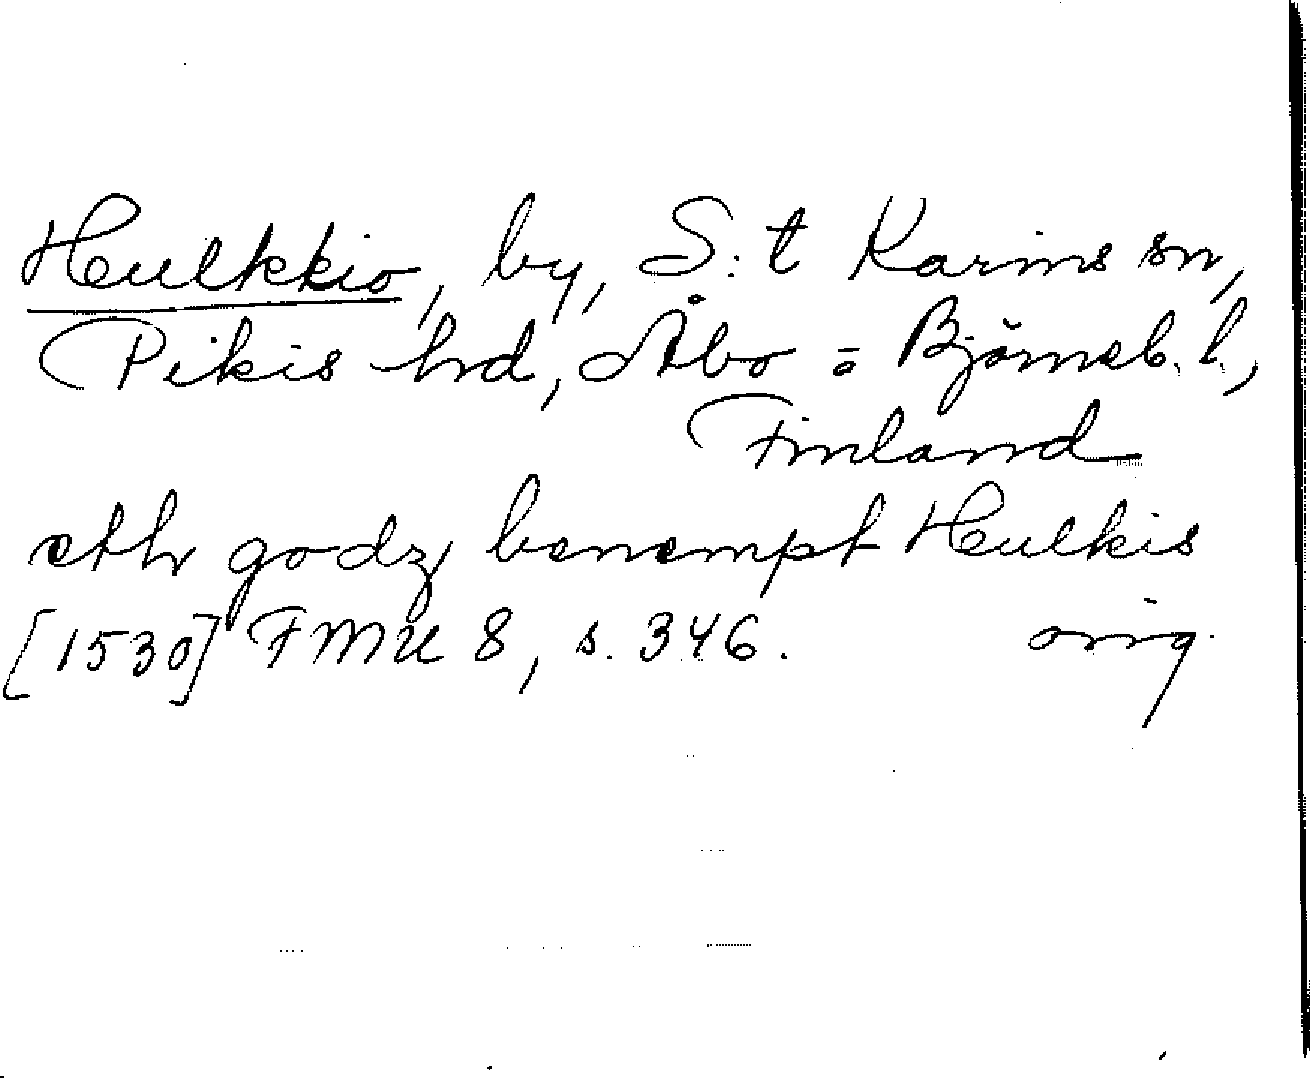 Heulkkio, by, S:t Karins sn,
Pikis hd, Åbo = Björneb. l.,
Finland
eth godz benempt Heulkis
[1530] FMU 8, s. 346. orig.